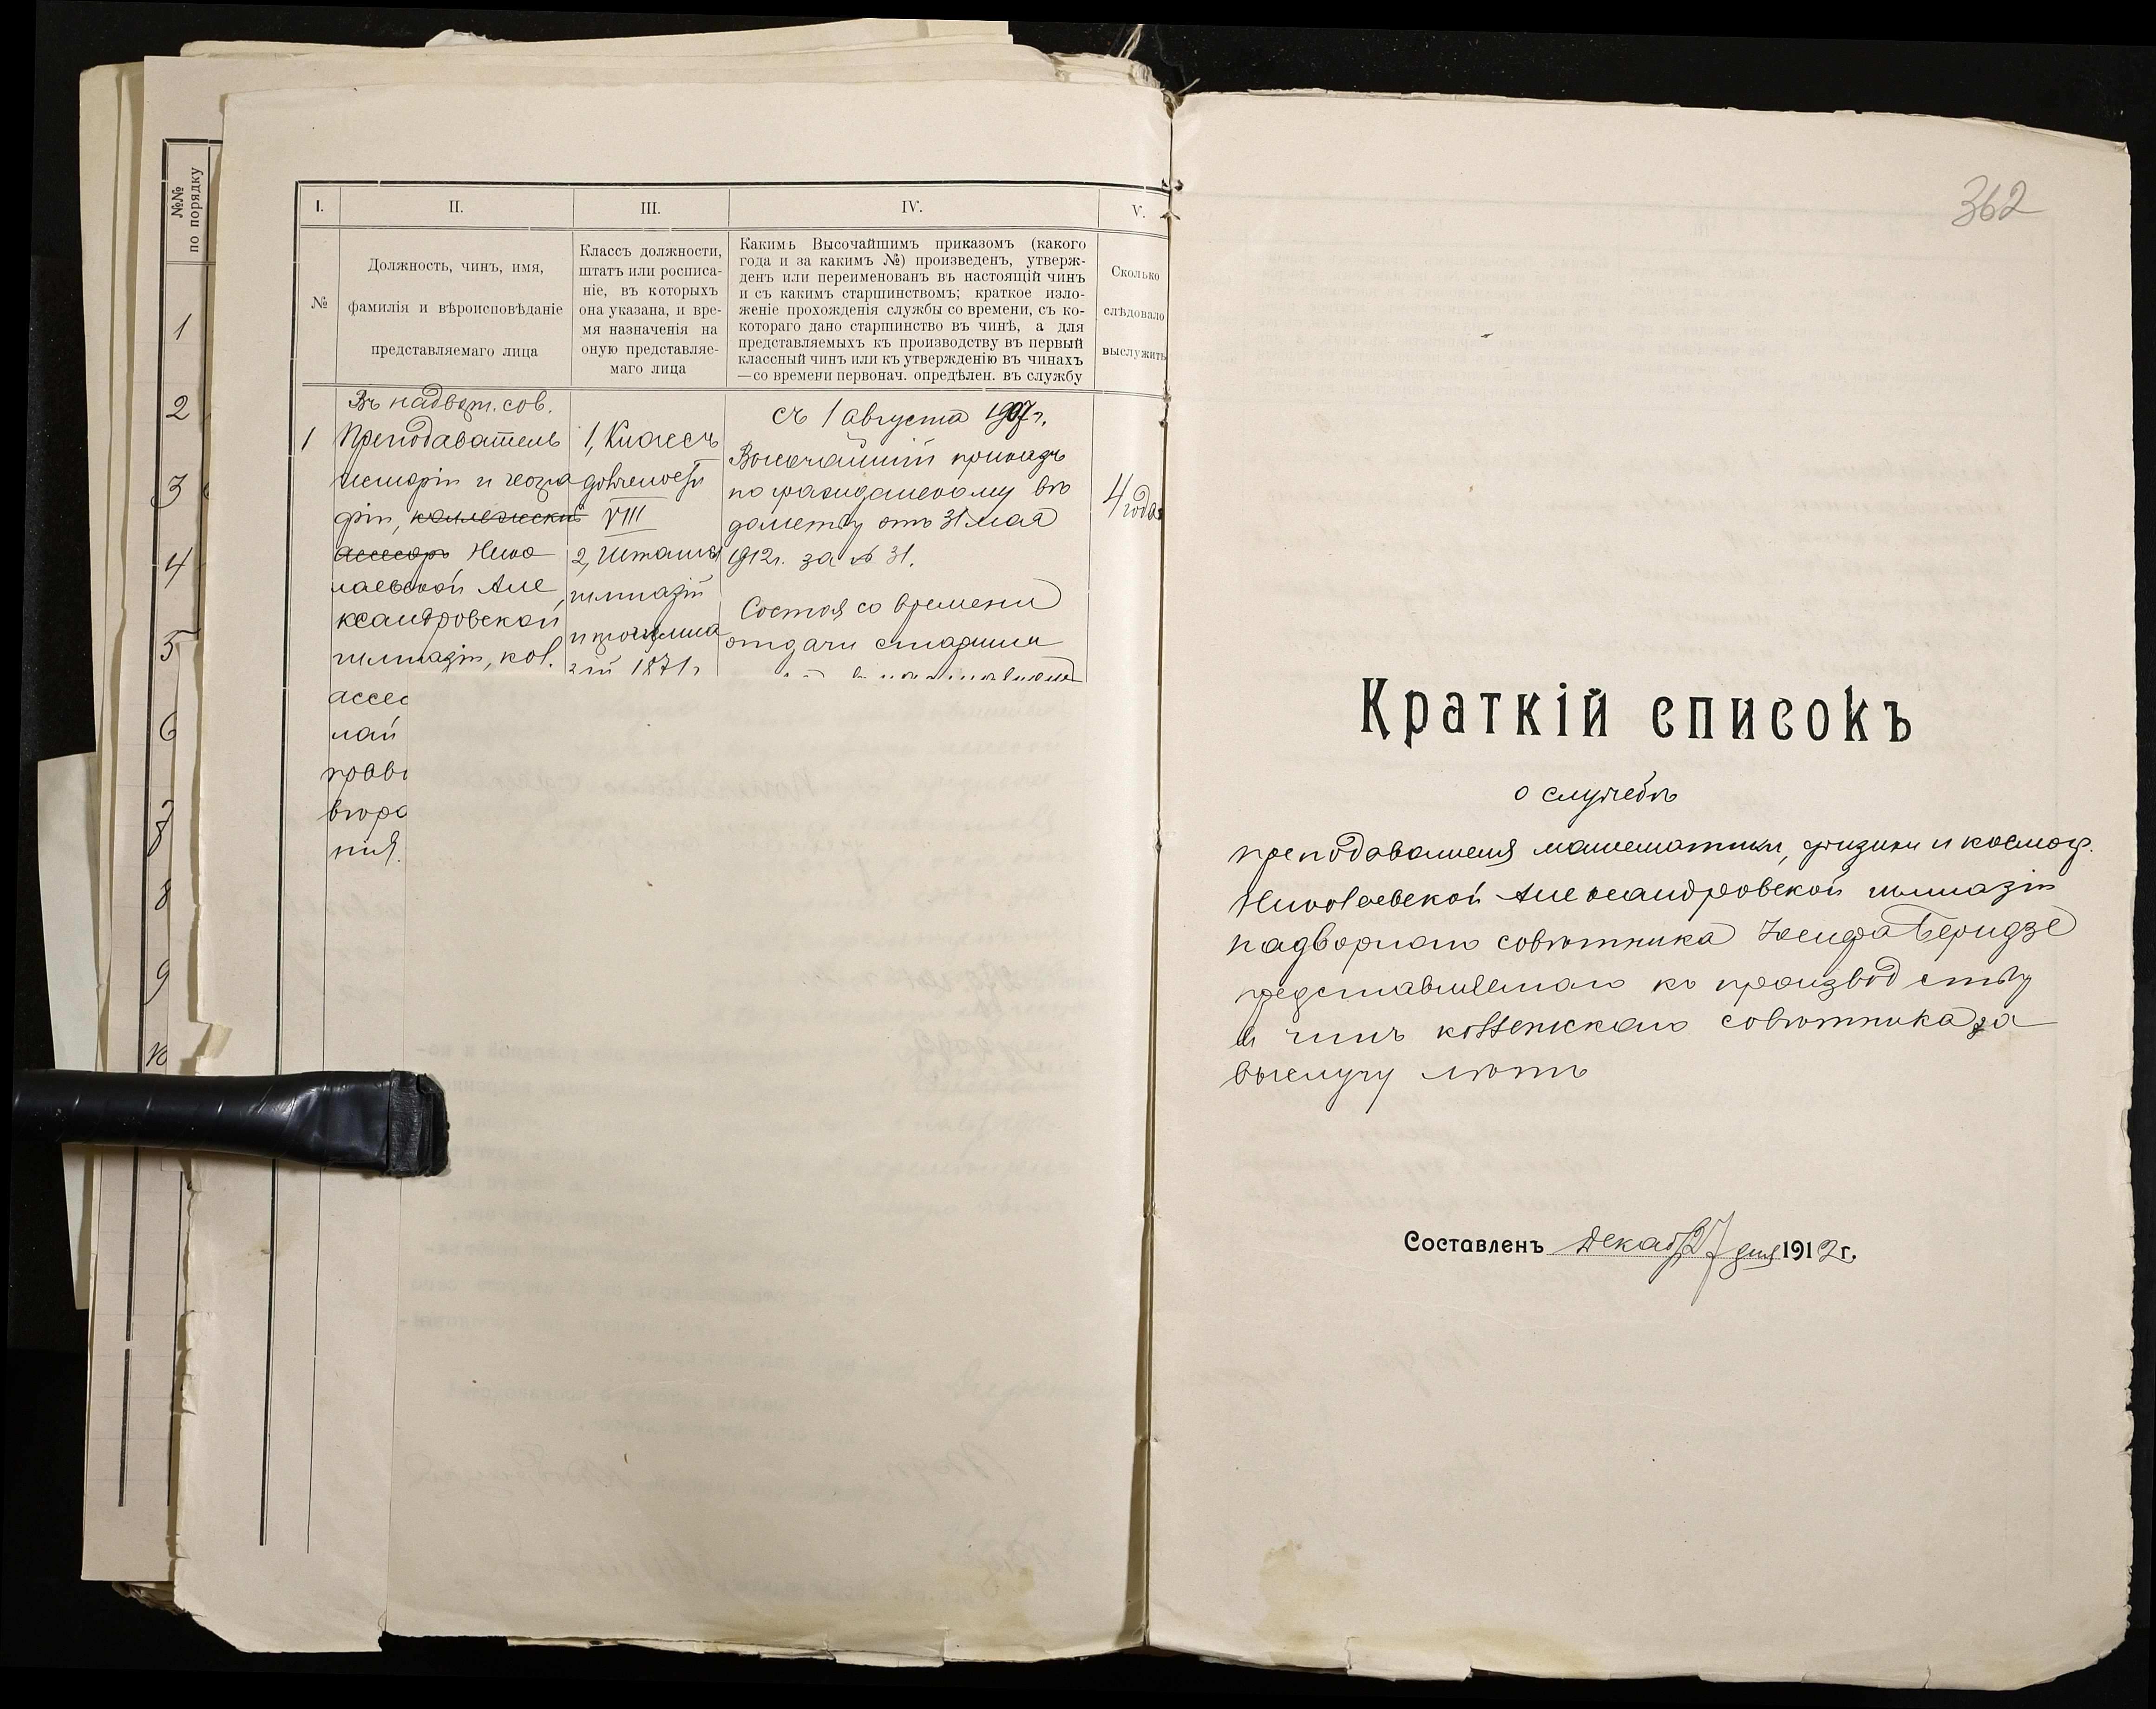 №№
по порядку
1
2
3
4
5
6
7
8
8
9
10
I.
II.
III.
IV.
V.
№
Должность, чинъ, имя,
фамилія и вѣроисповѣданіе
представляемаго лица
Классъ должности,
штатъ или росписа-
ніе, въ которыхъ
она указана, и вре-
мя назначенія на
оную представляе-
маго лица
Какимъ Высочайшимъ приказомъ (какого
года и за какимъ №) произведенъ, утверж-
денъ или переименованъ въ настоящій чинъ
и съ какимъ старшинствомъ; краткое изло-
женіе прохожденія службы со времени, съ ко-
котораго дано старшинство въ чинѣ, а для
представляемыхъ къ производству въ первый
классный чинъ или къ утвержденію въ чинахъ
—со времени первонач. опредѣлен. въ службу
Сколько
слѣдовало
выслужить
Въ надвор. сов.
1
Преподаватель
исторіи и геогра
фіи, коллежскій
ассесоръ Нико
лаевской Але
ксандровской
гимназіи, кол.
ассес
лай
право
вѣро
нія.
1, Классъ
должности
VIII
2, Штатъ
гимназій
и прогимна
зій 1871 г
съ 1 августа 1907 г.
Высочайшій приказъ
по гражданскому вѣ
домству отъ 31 мая
1912 г. за № 31.
Состоя со времени
отдачи старшин
4 года
362
Краткій списокъ
о службѣ
преподавателя математики, физики и космогр.
Николаевской Александровской гимназіи
надворнаго совѣтника Іосифа Беридзе
представляемаго къ производству
въ чинъ коллежскаго совѣтника за
выслугу лѣтъ
Составленъ Декабр 7 дня 1912 г.